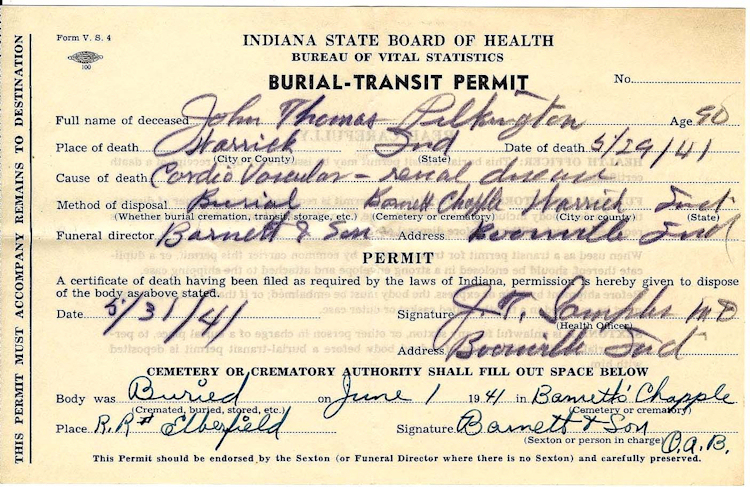 Form V. S. 4
100
INDIANA STATE BOARD OF HEALTH
BUREAU OF VITAL STATISTICS
BURIAL-TRANSIT PERMIT
No.
Full name of deceased John Thomas Pilkington Age 90
Place of death Warrick Ind Date of death 5/29/41
(City or County) (State)
Cause of death Cardio Vascular - renal disease
Method of disposal Burial Barnett Chapple Warrick Ind
(Whether burial cremation, transit, storage, etc.) (Cemetery or crematory) (City or county) (State)
Funeral director Barnett & Son Address Boonville Ind
PERMIT
A certificate of death having been filed as required by the laws of Indiana, permission is hereby given to dispose
of the body as above stated.
Date 5/31/41 Signature J. T. Samples MD
(Health Officer)
Address Boonville Ind
CEMETERY OR CREMATORY AUTHORITY SHALL FILL OUT SPACE BELOW
Body was Buried on June 1 1941 in Barnett's Chapple
(Cremated, buried, stored, etc.) (Cemetery or crematory)
Place R.R# Elberfield Signature Barnett & Son
(Sexton or person in charge) O.A.B.
This Permit should be endorsed by the Sexton (or Funeral Director where there is no Sexton) and carefully preserved.
THIS PERMIT MUST ACCOMPANY REMAINS TO DESTINATION